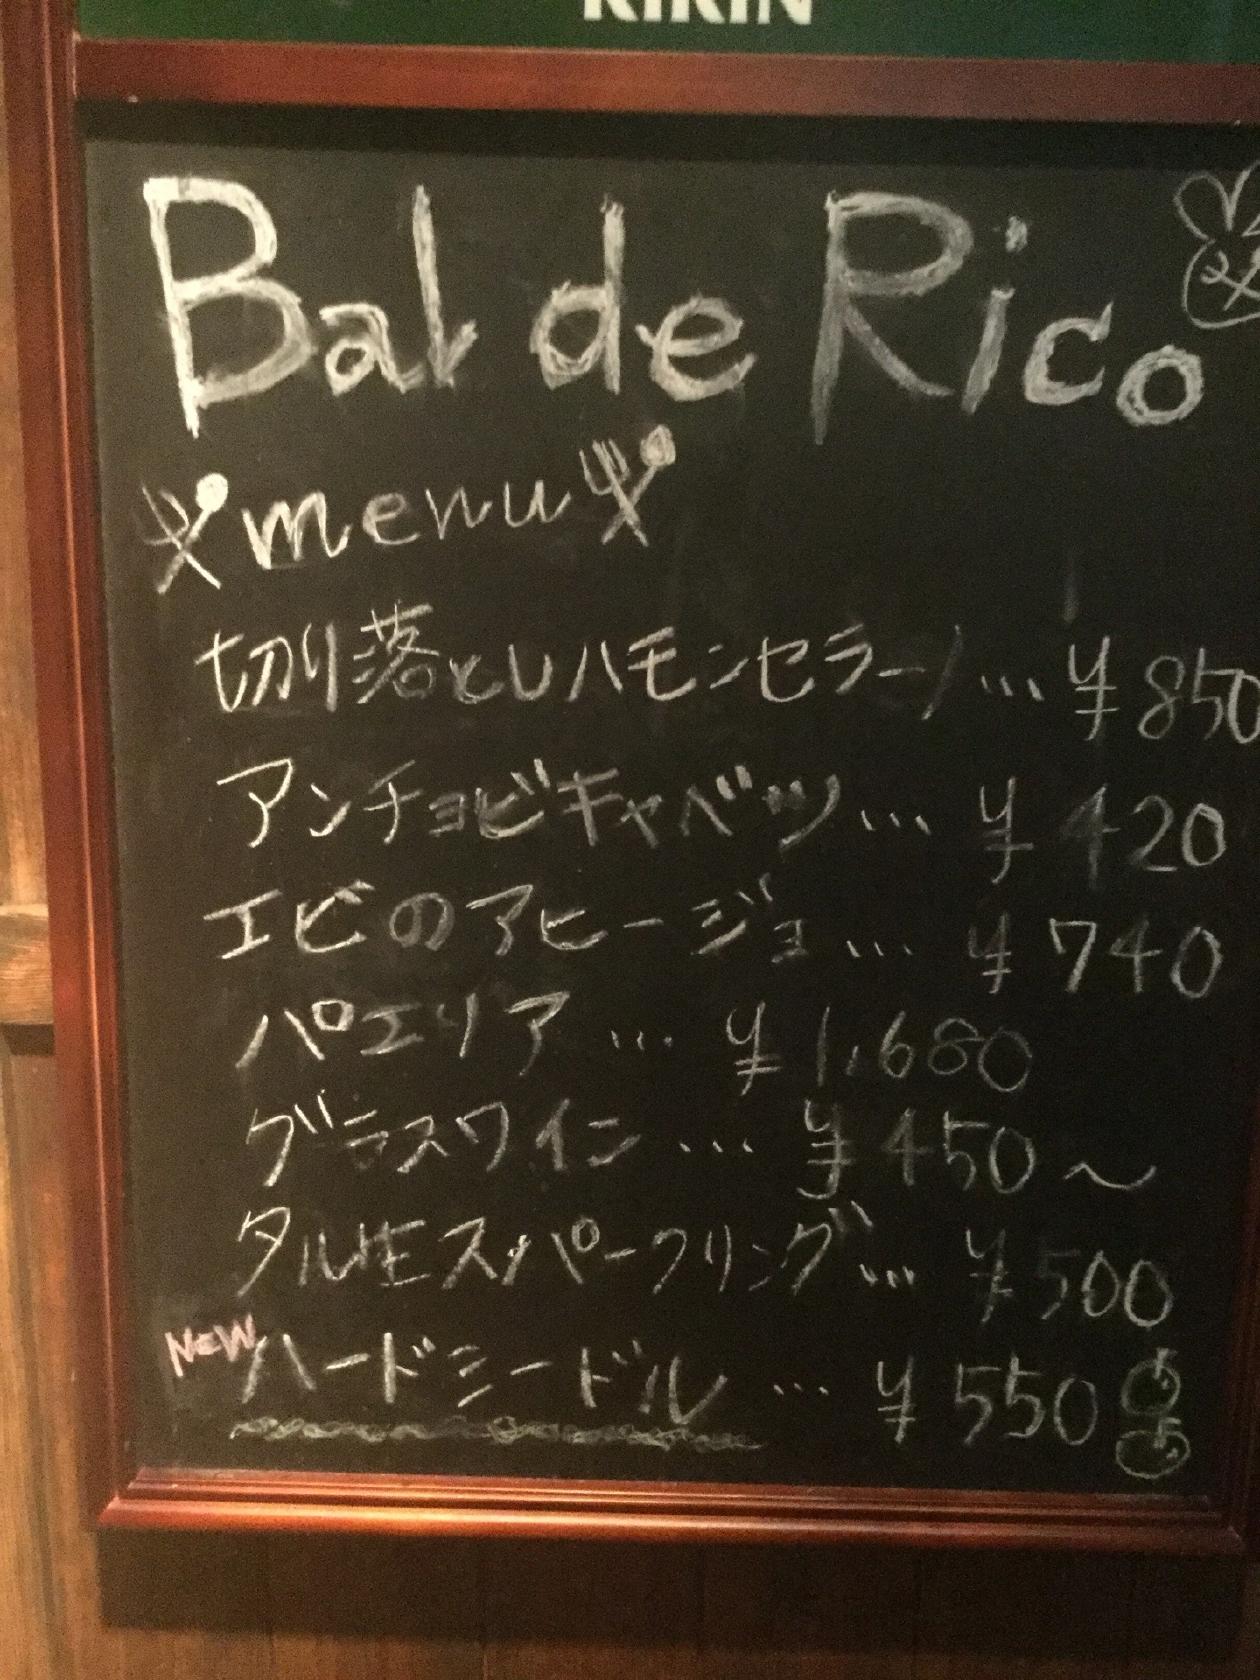 KIRIN
Bal de Rico
menu
切り落としハモンセラーノ…¥850
アンチョビキャベツ…¥420
エビのアヒージョ…¥740
パエリア…¥1,680
グラスワイン…¥450〜
タル生スパークリング…¥500
NEW ハードシードル…¥550